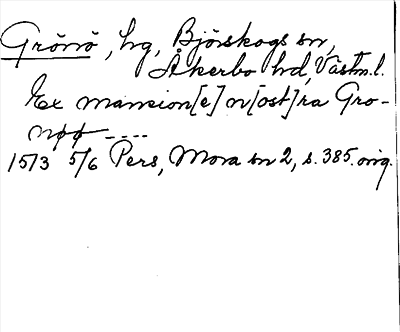 Grönö, hg, Björskogs sn,
Åkerbo hd, Västm.l.
Ex mansion[e] n[ost]ra Gro-
nøø ----
1513 5/6 Pers, Mora sn 2, s. 385. orig.